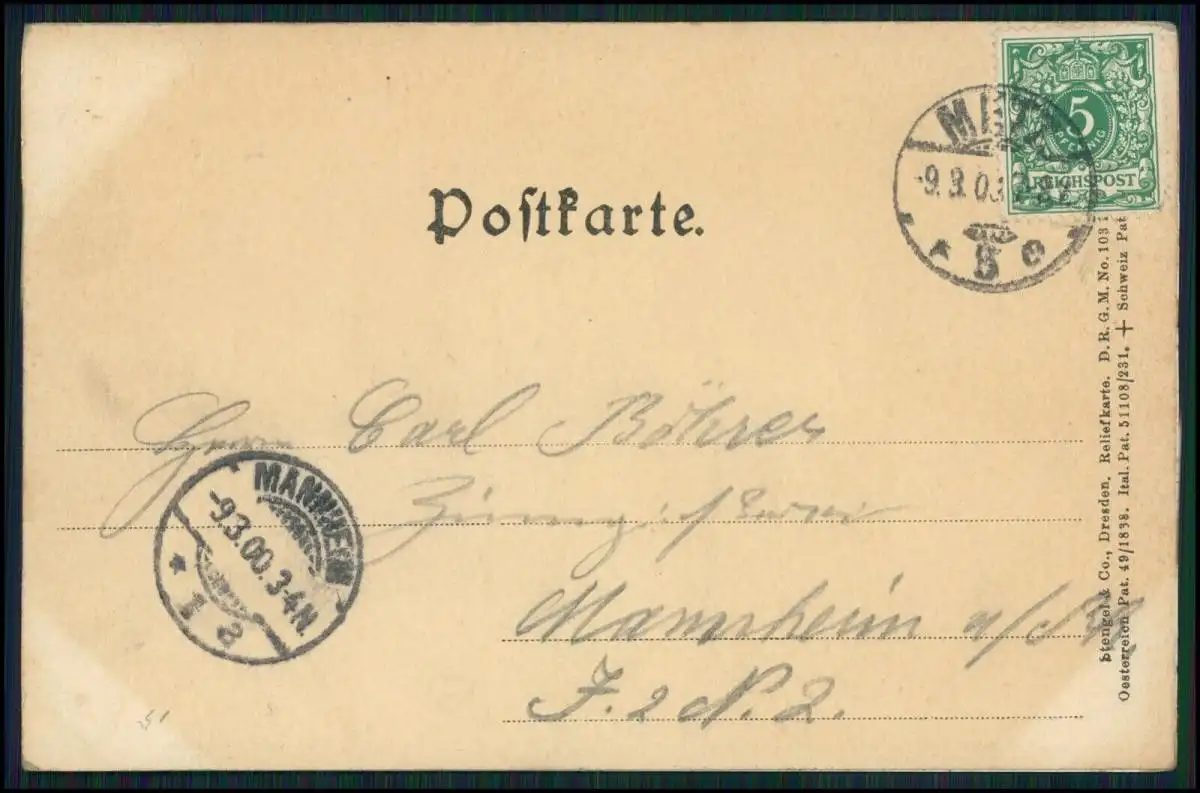 Postkarte.
5
PFENNIG
REICHSPOST
5
Herrn Carl Böhrer
Mannheim a/Rh
F. 2 N. 2.
MANNHEIM
-9.3.00.3-4N.
* 1 a
Stengel & Co., Dresden, Reliefkarte. D. R. G. M. No. 103
Oesterreich Pat. 49/1838. Ital. Pat. 51108/231. + Schweiz Pat